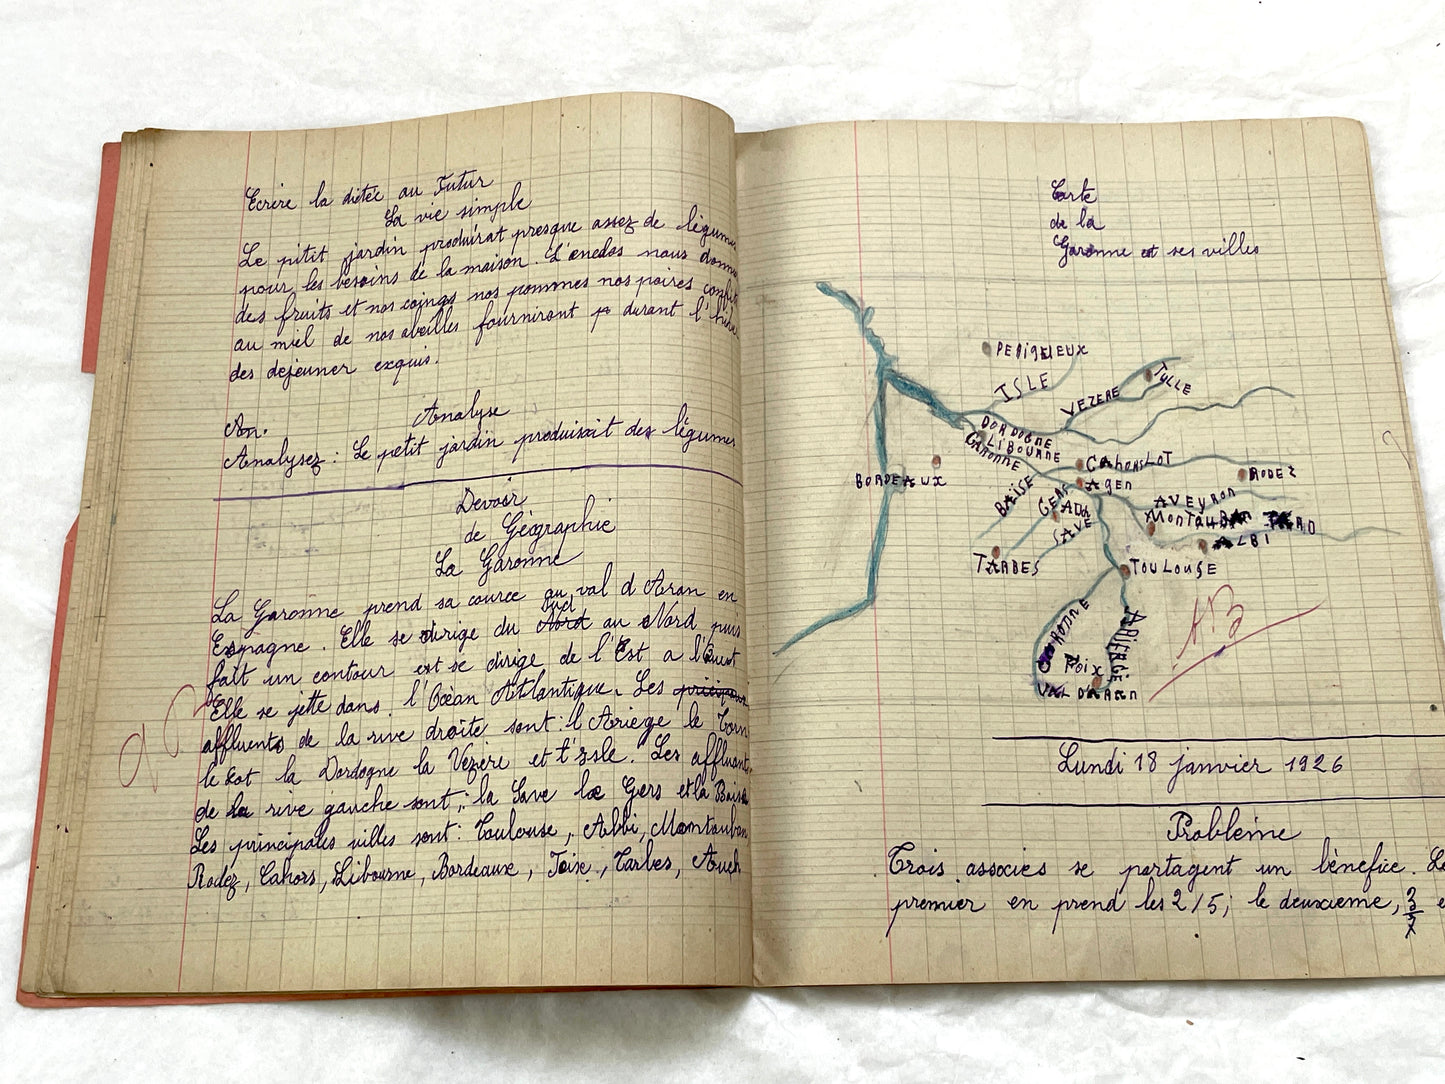 Ecrire la dictée au Futur
La vie simple
Le pitit jardin produirat presque assez de légumes
pour les besoins de la maison. L'enclos nous donne
des fruits et nos coings nos pommes nos poires confit
au miel de nos abeilles fourniront durant l'hiver
des dejeuner exquis.
An. Analyse
Analysez : Le petit jardin produisait des légumes
Devoir
de Géographie
La Garonne
La Garonne prend sa cource au val d Aran en
Espagne. Elle se dirige du Sud au Nord puis
fait un contour et se dirige de l'Est a l'Ouest
Elle se jette dans l'Océan Atlantique. Les
affluents de la rive droite sont : l Ariège le Tarn
le Lot la Dordogne la Vézère et l'Isle. Les affluents
de la rive gauche sont : la Save le Gers et la Baise
Les principales villes sont : Toulouse, Albi, Montauban
Rodez, Cahors, Libourne, Bordeaux, Foix, Tarbes, Auch
Carte
de la
Garonne et ses villes
PERIGUEUX
ISLE
TULLE
VEZERE
DORDOGNE
LIBOURNE
GARONNE
CAHORS LOT
RODEZ
BORDEAUX
AGEN
BAÏSE
GERS
AUCH
SAVE
AVEYRON
MONTAUBAN
ALBI
TARBES
TOULOUSE
ARIEGE
FOIX
VAL D ARAN
Lundi 18 janvier 1926
Problème
Trois associés se partagent un bénefice. Le
premier en prend les 2/5; le deuxieme, 3/7 e